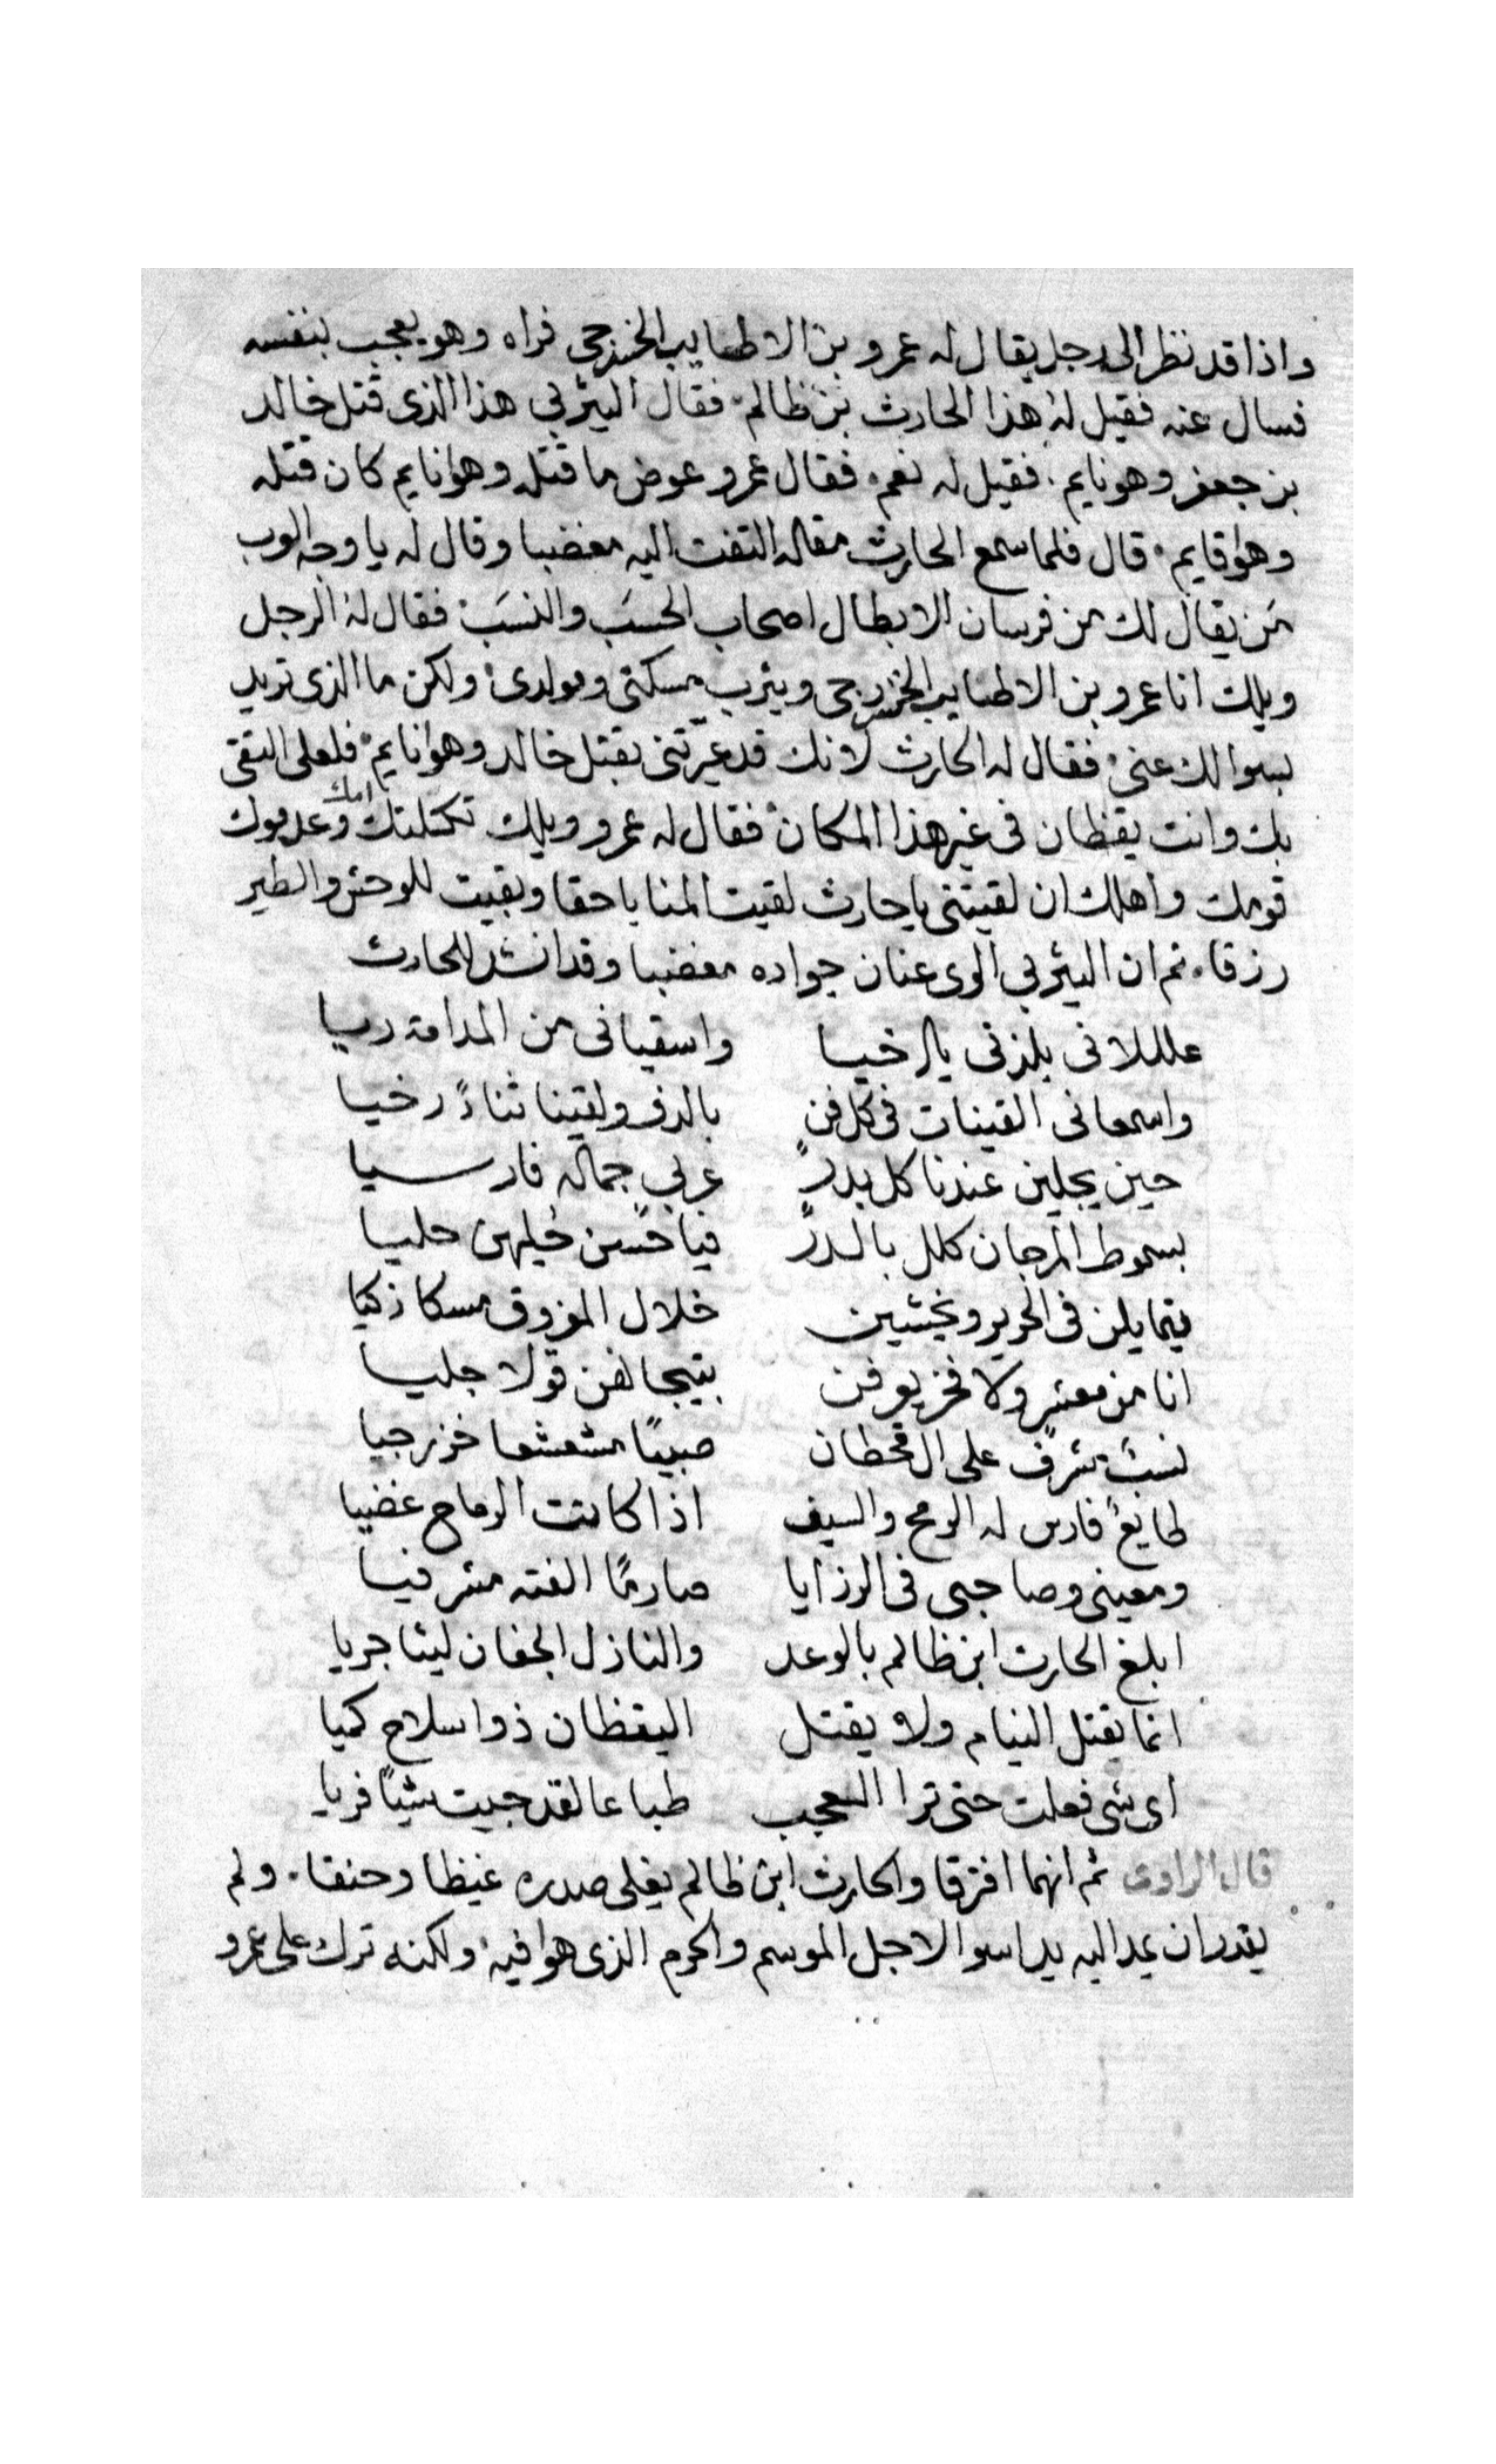 واذا قد نظر الى رجل يقال له عمرو بن الاطنايب الخزرجى فراه وهو يعجب بنفسه
فسال عنه فقيل له هذا الحارث بن ظالم فقال اليثربي هذا الذى قتل خالد
بن جعفر وهو نايم فقيل له نعم فقال عمرو عوض ما قتله وهوا نايم كان قتله
وهوا قايم قال فلما سمع الحارث مقاله التفت اليه مغضبا وقال له يا وجه العرب
مَن يقال لك من فرسان الابطال اصحاب الحسَب والنسَب فقال له الرجل
ويلك انا عمرو بن الاطنايب الخزرجى ويثرب مسكنى ومولدى ولكن ما الذى تريد
بسوالك عنى فقال له الحارث لانك قد عيّرتنى بقتل خالد وهوا نايم فلعلى التقى
بك وانت يقظان فى غير هذا المكان فقال له عمرو ويلك تكتلتك امك وعدموك
قومك واهلك ان لقيتنى يا حارث لقيت المنايا حقا وبقيت للوحش والطير
رزقا ثم ان اليثربي الوى عنان جواده مغضبا وقد انشد للحارث
عللانى بلذنى يال خيا واسقيانى من المدامة ريا
واسمعانى القينات فى كل فن بالدف ولقينا ثناءً رخيا
حين يجلين عندنا كل بدرٍ عربي جماله فارسيا
بسموط المرجان كلل بالدرّ فيا حُسن حُليهن حليا
يتمايلن فى الحرير ويخشين خلال المزوق مسكا زكيا
انا من معشرٍ ولا فخر يعرفن قولا جليا
نسبٌ مشرف على ال قحطان صبيًا مشعشعا خزرجيا
طايعٌ فارس له الرمح والسيف اذا كانت الرماح غضيا
ومعينى وصاحبى فى الرزايا صارمًا الفته مشرفيا
ابلغ الحارث ابن ظالم بالوعد والنازل الجفان ليثا جريا
انما يقتل النيام ولا يقتل اليقظان ذوا سلاح كميا
اى شى فعلت حتى ترا العجب طباعا لقد جيت شيًا فريا
قال الراوى ثم انهما افترقا والحارث ابن ظالم يغلى صدره غيظا وحنقا ولم
يقدر ان يمد اليه يدا سوا لاجل الموسم والحرم الذى هوا فيه ولكنه ترك على عمرو